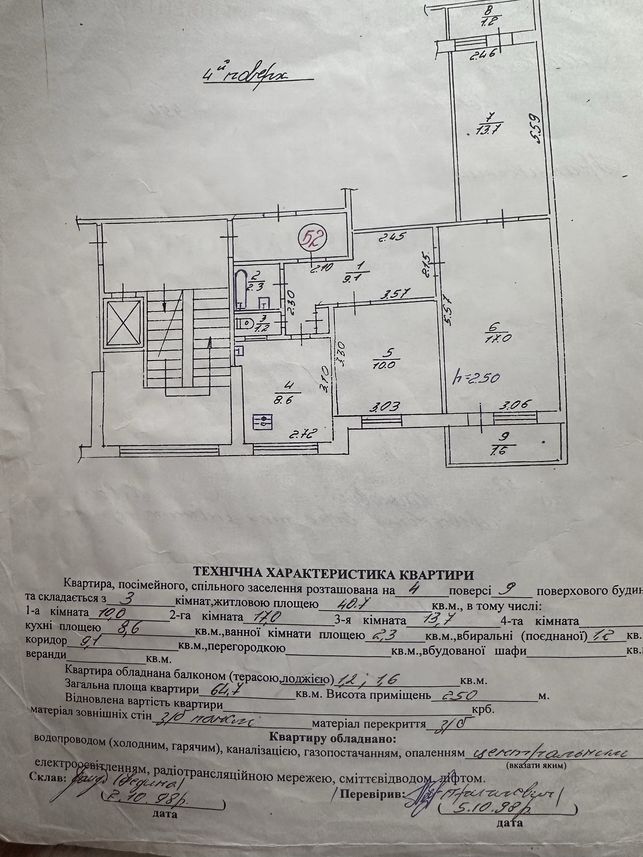 4й поверх
8
1.2
2.46
7
13.7
5.59
52
2.10
2.45
1
9.1
2.15
2
2.3
2.30
3.57
3
1.2
5.57
6
17.0
3.30
5
10.0
h=2.50
3.10
4
8.6
3.03
3.06
2.72
9
1.6
ТЕХНІЧНА ХАРАКТЕРИСТИКА КВАРТИРИ
Квартира, посімейного, спільного заселення розташована на 4 поверсі 9 поверхового будин
та складається з 3 кімнат,житловою площею 40.7 кв.м., в тому числі:
1-а кімната 10,0 2-га кімната 17,0 3-я кімната 13,7 4-та кімната
кухні площею 8,6 кв.м.,ванної кімнати площею 2,3 кв.м.,вбиральні (поєднаної) 1.2 кв.
коридор 9,1 кв.м.,перегородкою кв.м.,вбудованої шафи кв.
веранди кв.м.
Квартира обладнана балконом (терасою,лоджією) 1.2; 1.6 кв.м.
Загальна площа квартири 64,7 кв.м. Висота приміщень 2.50 м.
Відновлена вартість квартири крб.
матеріал зовнішніх стін з/б панелі матеріал перекриття з/б
Квартиру обладнано:
водопроводом (холодним, гарячим), каналізацією, газопостачанням, опаленням центральним
(вказати яким)
електроосвітленням, радіотрансляційною мережею, сміттєвідводом, ліфтом.
Склав: Перевірив:
2.10.98р. 5.10.98р.
дата дата